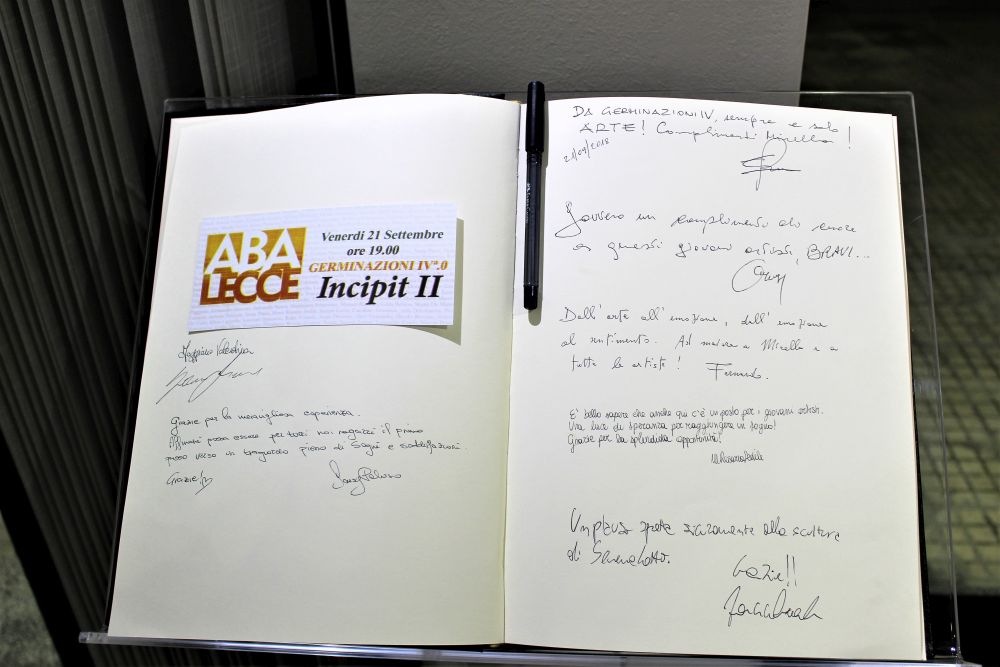 ABA
LECCE
Venerdì 21 Settembre
ore 19.00
GERMINAZIONI IVª.0
Incipit II
Grazie per la meravigliosa esperienza.
possa essere per tutti noi ragazzi il primo
passo verso un traguardo pieno di sogni e soddisfazioni.
Grazie!
DA GERMINAZIONI IV, sempre e solo
ARTE! Complimenti Mirella!
21/09/2018
Davvero un complimento di cuore
a questi giovani artisti, BRAVI...
Dall'arte all'emozione, dall'emozione
al sentimento. Ad maiora a Mirella e a
tutte le artiste!
Fernando.
E' bello sapere che anche qui c'è un posto per i giovani artisti.
Una luce di speranza per raggiungere un sogno!
Grazie per la splendida opportunità!
Un plauso spetta sicuramente alle sculture
di
Grazie!!